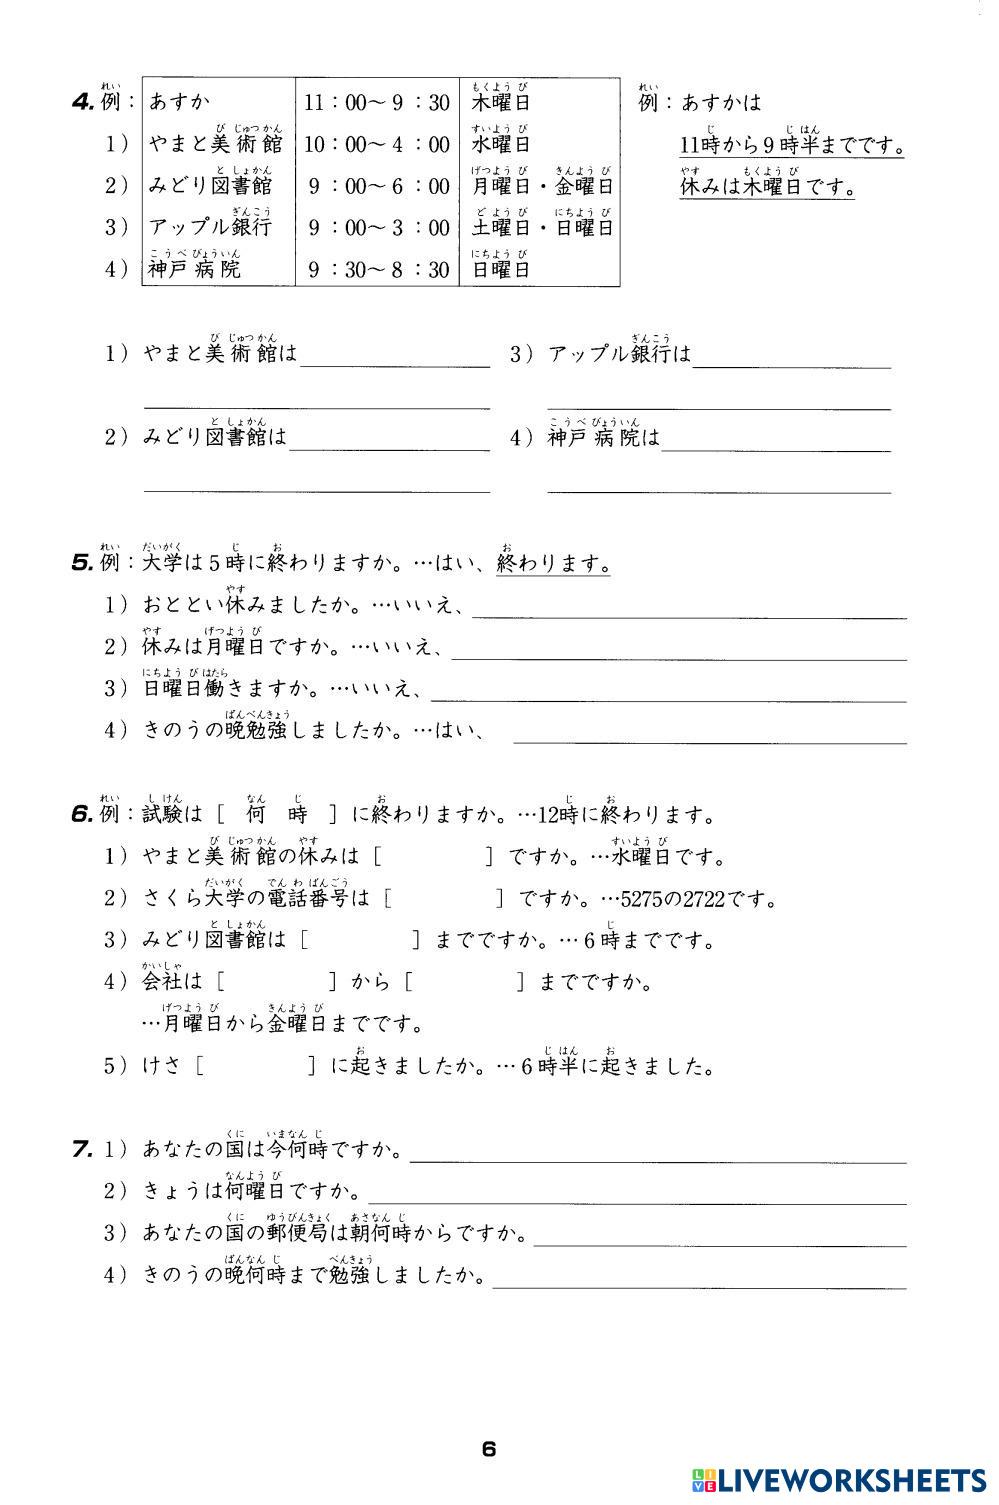 4. 例： あすか 11：00～9：30 木曜日 例：あすかは
1） やまと美術館 10：00～4：00 水曜日 11時から9時半までです。
2） みどり図書館 9：00～6：00 月曜日・金曜日 休みは木曜日です。
3） アップル銀行 9：00～3：00 土曜日・日曜日
4） 神戸病院 9：30～8：30 日曜日
1）やまと美術館は 3）アップル銀行は
2）みどり図書館は 4）神戸病院は
5. 例：大学は5時に終わりますか。…はい、終わります。
1）おととい休みましたか。…いいえ、
2）休みは月曜日ですか。…いいえ、
3）日曜日働きますか。…いいえ、
4）きのうの晩勉強しましたか。…はい、
6. 例：試験は［ 何時 ］に終わりますか。…12時に終わります。
1）やまと美術館の休みは［ ］ですか。…水曜日です。
2）さくら大学の電話番号は［ ］ですか。…5275の2722です。
3）みどり図書館は［ ］までですか。…6時までです。
4）会社は［ ］から［ ］までですか。
…月曜日から金曜日までです。
5）けさ［ ］に起きましたか。…6時半に起きました。
7. 1）あなたの国は今何時ですか。
2）きょうは何曜日ですか。
3）あなたの国の郵便局は朝何時からですか。
4）きのうの晩何時まで勉強しましたか。
6
LIVE LIVEWORKSHEETS